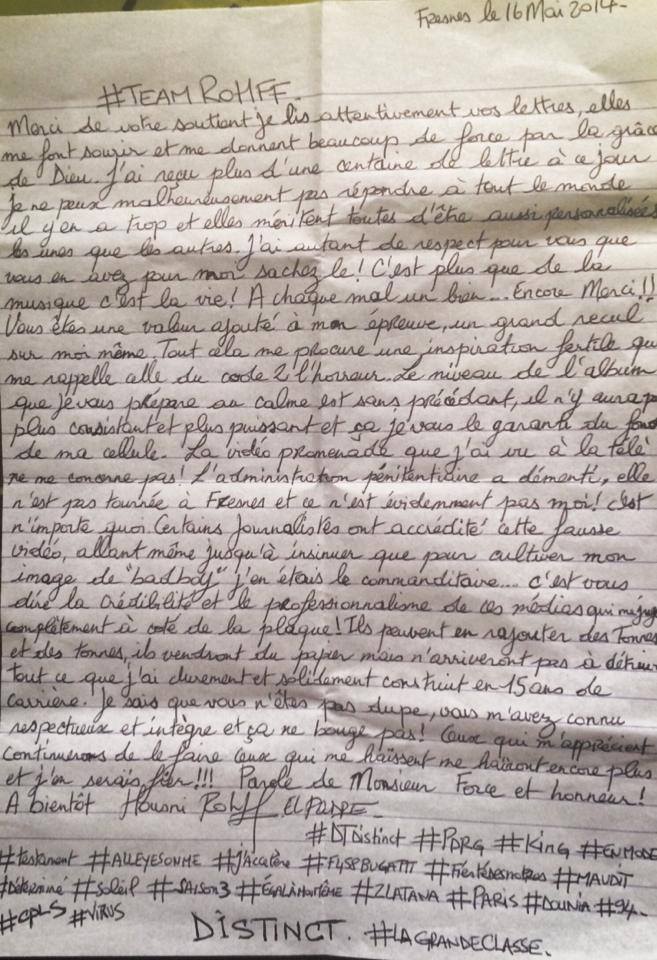 Fresnes le 16 Mai 2014-
#TEAM ROHFF.
Merci de votre soutient je lis attentivement vos lettres, elles
me font sourir et me donnent beaucoup de force par la grâce
de Dieu. J'ai reçu plus d'une centaine de lettre à ce jour
je ne peux malheureusement pas répondre à tout le monde
il y'en a trop et elles méritent toutes d'être aussi personnalisées
les unes que les autres. J'ai autant de respect pour vous que
vous en avez pour moi sachez le! C'est plus que de la
musique c'est la vie! A chaque mal un bien... Encore Merci!!
Vous êtes une valeur ajouté à mon épreuve, un grand recul
sur moi même. Tout cela me procure une inspiration fertile qui
me rappelle celle du code 2 l'horreur. Le niveau de l'album
que je vous prépare au calme est sans précédant, il n'y aura p
plus consistant et plus puissant et ça je vous le garanti du fond
de ma cellule. La vidéo promenade que j'ai vu à la télé
ne me concerne pas! L'administration pénitentiaire a démenti, elle
n'est pas tournée à Fresnes et ce n'est évidemment pas moi! c'est
n'importe quoi. Certains journalistes ont accrédité cette fausse
vidéo, allant même jusqu'à insinuer que pour cultiver mon
image de "badboy" j'en étais le commanditaire... c'est vous
dire la crédibilité et le professionnalisme de ces médias qui
complètement à coté de la plaque! Ils peuvent en rajouter des tonnes
et des tonnes, ils vendront du papier mais n'arriveront pas à détruire
tout ce que j'ai durement et solidement construit en 15 ans de
carrière. Je sais que vous n'êtes pas dupe, vous m'avez connu
respectueux et intègre et ça ne bouge pas! Ceux qui m'apprécient
continuerons de le faire ceux qui me haïssent me haïront encore plus
et j'en serais fier!!! Parole de Monsieur Force et honneur!
A bientôt Housni Rohff EL PADRE-
#DJDistinct #PDRG #King #EN MODE
#testament #ALLEYESONME #J'Accélère #F458BUGATTI #Fiertédesnotres #MAUDIT
#Déterminé #Soleil #SAISON3 #ÉGALàMoiMême #ZLATANA #PARIS #DOUNIA #94-
#CPLS #VIRUS
DISTINCT. #LAGRANDECLASSE.